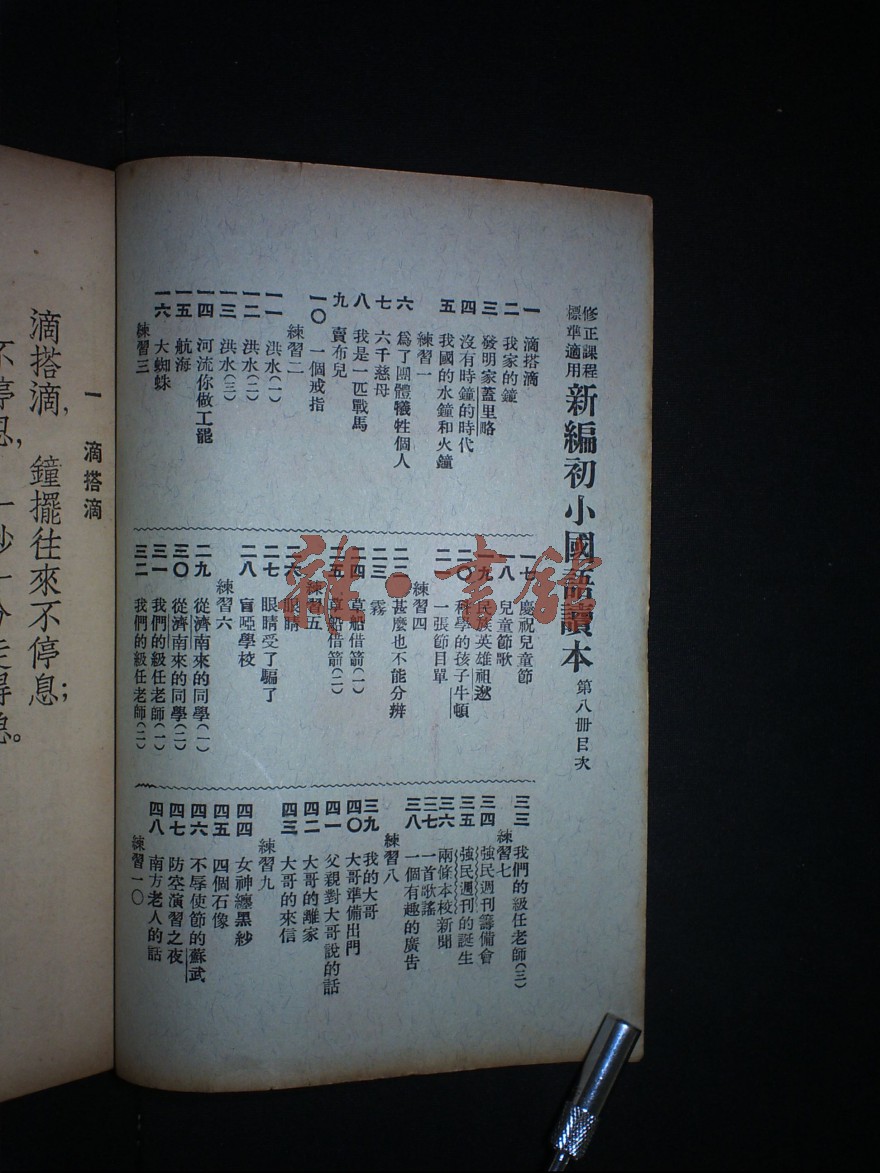 修正課程
標準適用
新編初小國語讀本 第八冊目次
一 滴搭滴
二 我家的鐘
三 發明家蓋里略
四 沒有時鐘的時代
五 我國的水鐘和火鐘
練習一
六 爲了團體犧牲個人
七 六千慈母
八 我是一匹戰馬
九 賣布兒
一〇 一個戒指
練習二
一一 洪水（一）
一二 洪水（二）
一三 洪水（三）
一四 河流你做工罷
一五 航海
一六 大蜘蛛
練習三
一七 慶祝兒童節
一八 兒童節歌
一九 民族英雄祖逖
二〇 科學的孩子牛頓
二一 一張節目單
練習四
二二 甚麼也不能分辨
二三 霧
二四 草船借箭（一）
二五 草船借箭（二）
練習五
二六 眼睛
二七 眼睛受了騙了
二八 盲啞學校
練習六
二九 從濟南來的同學（一）
三〇 從濟南來的同學（二）
三一 我們的級任老師（一）
三二 我們的級任老師（二）
三三 我們的級任老師（三）
練習七
三四 強民週刊籌備會
三五 強民週刊的誕生
三六 兩條本校新聞
三七 一首歌謠
三八 一個有趣的廣告
練習八
三九 我的大哥
四〇 大哥準備出門
四一 父親對大哥說的話
四二 大哥的離家
四三 大哥的來信
練習九
四四 女神纏黑紗
四五 四個石像
四六 不辱使節的蘇武
四七 防空演習之夜
四八 南方老人的話
練習一〇
一 滴搭滴
滴搭滴，鐘擺往來不停息；
不停息，一秒一分走得急。
雜·書館